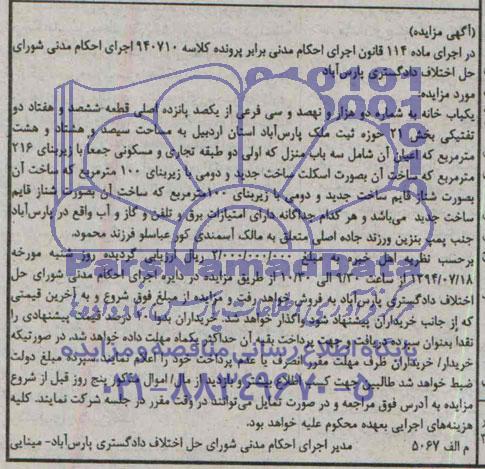 (آگهی مزایده)
در اجرای ماده ۱۱۴ قانون اجرای احکام مدنی برابر پرونده کلاسه ۹۴۰۷۱۰ اجرای احکام مدنی شورای
حل اختلاف دادگستری پارس‌آباد
مورد مزایده:
یکباب خانه به شماره دو هزار و نهصد و سی فرعی از یکصد پانزده اصلی قطعه ششصد و هفتاد دو
تفتیکی بخش ۲۱ حوزه ثبت ملک پارس‌آباد استان اردبیل به مساحت سیصد و هشتاد و هشت
مترمربع که اعیان آن شامل سه باب منزل که اولی دو طبقه تجاری و مسکونی جمعا با زیربنای ۲۱۶
مترمربع که ساخت آن بصورت اسکلت ساخت جدید و دومی با زیربنای ۱۰۰ مترمربع که ساخت آن
بصورت شناژ قایم ساخت جدید و دومی با زیربنای ۱۰۰مترمربع که ساخت آن بصورت شناژ قایم
ساخت جدید می‌باشد و هر کدام جداگانه دارای امتیازات برق و تلفن و گاز و آب واقع در پارس‌آباد
جنب پمپ بنزین ورزند جاده اصلی متعلق به مالک آسمندی کور عباسلو فرزند محمود.
برحسب نظریه اهل خبره به مبلغ ۲/۰۰۰/۰۰۰/۰۰۰ ریال ارزیابی گردیده روز شنبه مورخه
۱۳۹۴/۰۷/۱۸ از ساعت ۹/۳۰ الی ۱۰/۳۰ از طریق مزایده در دایره اجرای احکام مدنی شورای حل
اختلاف دادگستری پارس‌آباد به فروش خواهد رفت و مزایده از مبلغ فوق شروع و به آخرین قیمتی
که از جانب خریداران پیشنهاد شود واگذار خواهد شد. خریداران بدوا ۱۰ درصد قیمت پیشنهادی را
نقدا بعنوان سپرده دریافت و جهت پرداخت بقیه آن حداکثر یکماه مهلت داده خواهد شد. در صورتیکه
خریدار/ خریداران ظرف مهلت مقرر انصراف یا عدم پرداخت خود را اعلام نمایند سپرده بنفع دولت
ضبط خواهد شد طالبین جهت کسب اطلاع بیشتر و بازدید از مال/ اموال مذکور پنج روز قبل از شروع
مزایده به آدرس فوق مراجعه و در صورت تمایل می‌توانند در وقت مقرر در جلسه شرکت نمایند. کلیه
هزینه‌های اجرایی بعهده محکوم علیه خواهد بود.
م الف ۵۰۶۷ مدیر اجرای احکام مدنی شورای حل اختلاف دادگستری پارس‌آباد- مینایی
ParsNamadData
پایگاه اطلاع رسانی مناقصه و مزایده
۰۲۱-۸۸۳۴۹۶۷۰-۵